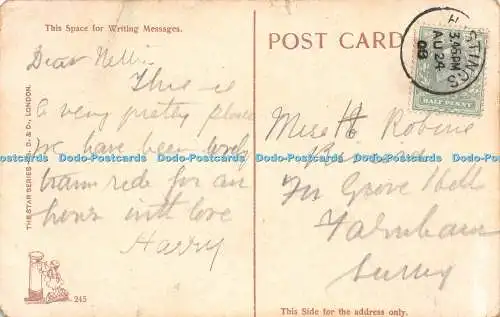 This Space for Writing Messages.
POST CARD
HASTINGS
3.45PM
AU 24
08
HALF PENNY
Dear Nellie
This is
a very pretty place
we have been
tram ride for an
hour with love
Harry
Miss H Robins
Grove
Farnham
Surrey
THE STAR SERIES G. D. & D., LONDON.
Dodo-Postcards Dodo-Postcards Dodo-Postcards Dodo-Postcards Dodo-Postcards
245
This Side for the address only.